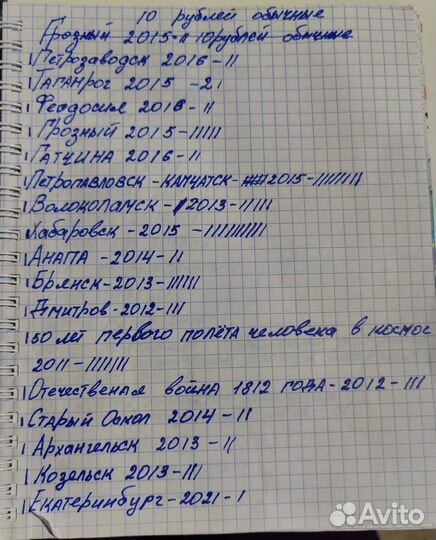 10 рублей обычные
Грозный 2015-11 10рублей обычние
Петрозаводск 2016-11
Таганрог 2015 -21
Феодосия 2016-11
Грозный 2015-11111
Гатчина 2016-11
Петропавловск-Камчатск-2015-11111111
Волоколамск-2013-11111
Хабаровск-2015 -1111111111
Анапа -2014-11
Брянск-2013-111111
Дмитров-2012-111
50 лет первого полёта человека в космос
2011-1111111
Отечественая война 1812 года-2012-111
Старый Оскол 2014-11
Архангельск 2013-11
Козельск 2013-111
Екатеринбург-2021-1
Avito